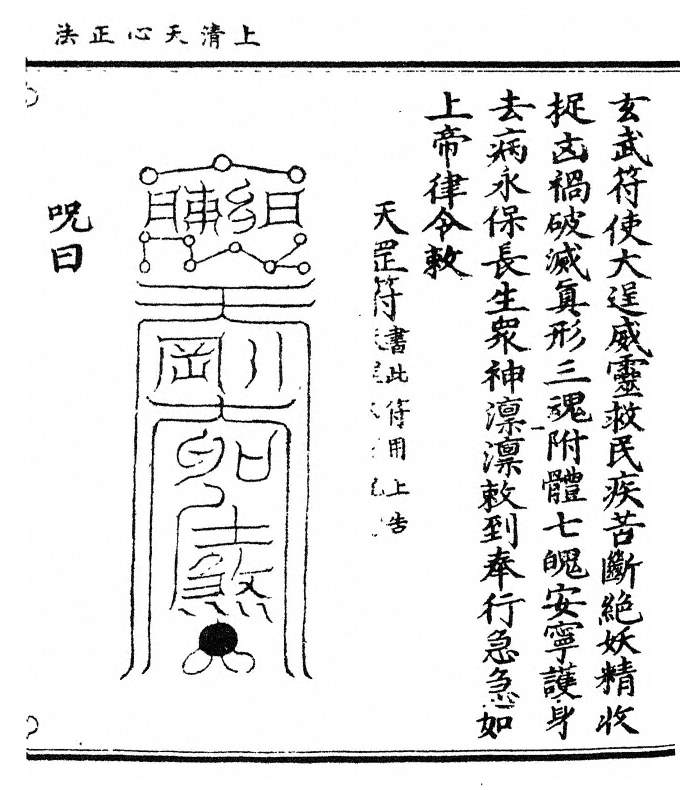 上清天心正法
玄武符使大逞威靈救民疾苦斷絕妖精收
捉凶禍破滅真形三魂附體七魄安寧護身
去病永保長生眾神凛凛敕到奉行急急如
上帝律令敕
天罡符書此符用上告
呪曰